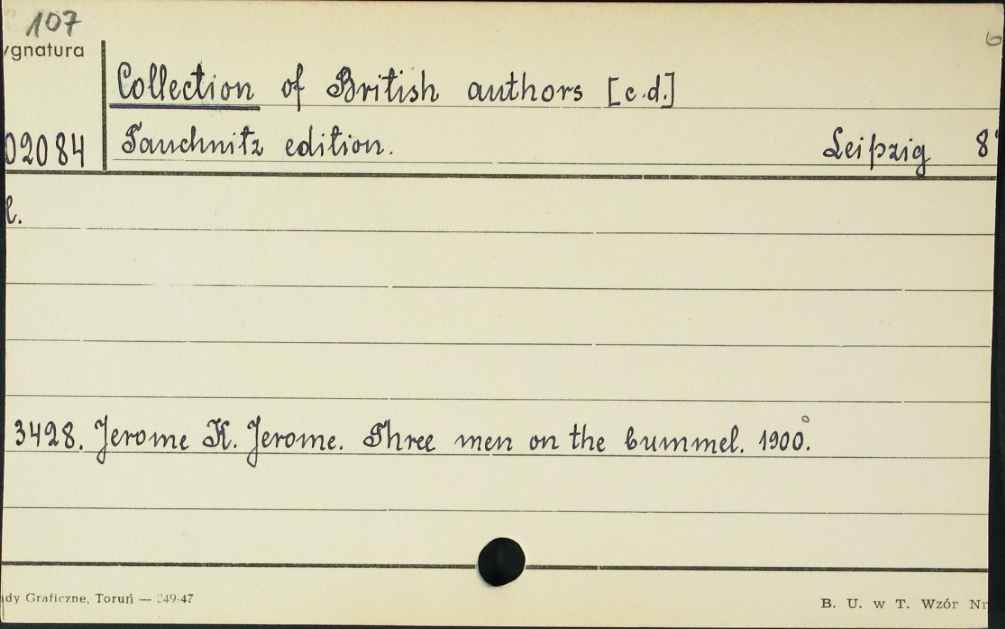 107
ygnatura
Collection of British authors [c.d.]
02084 Tauchnitz edition. Leipzig 8°
l.
3428. Jerome K. Jerome. Three men on the bummel. 1900.°
dy Graficzne, Toruń — 249-47
B. U. w T. Wzór Nr